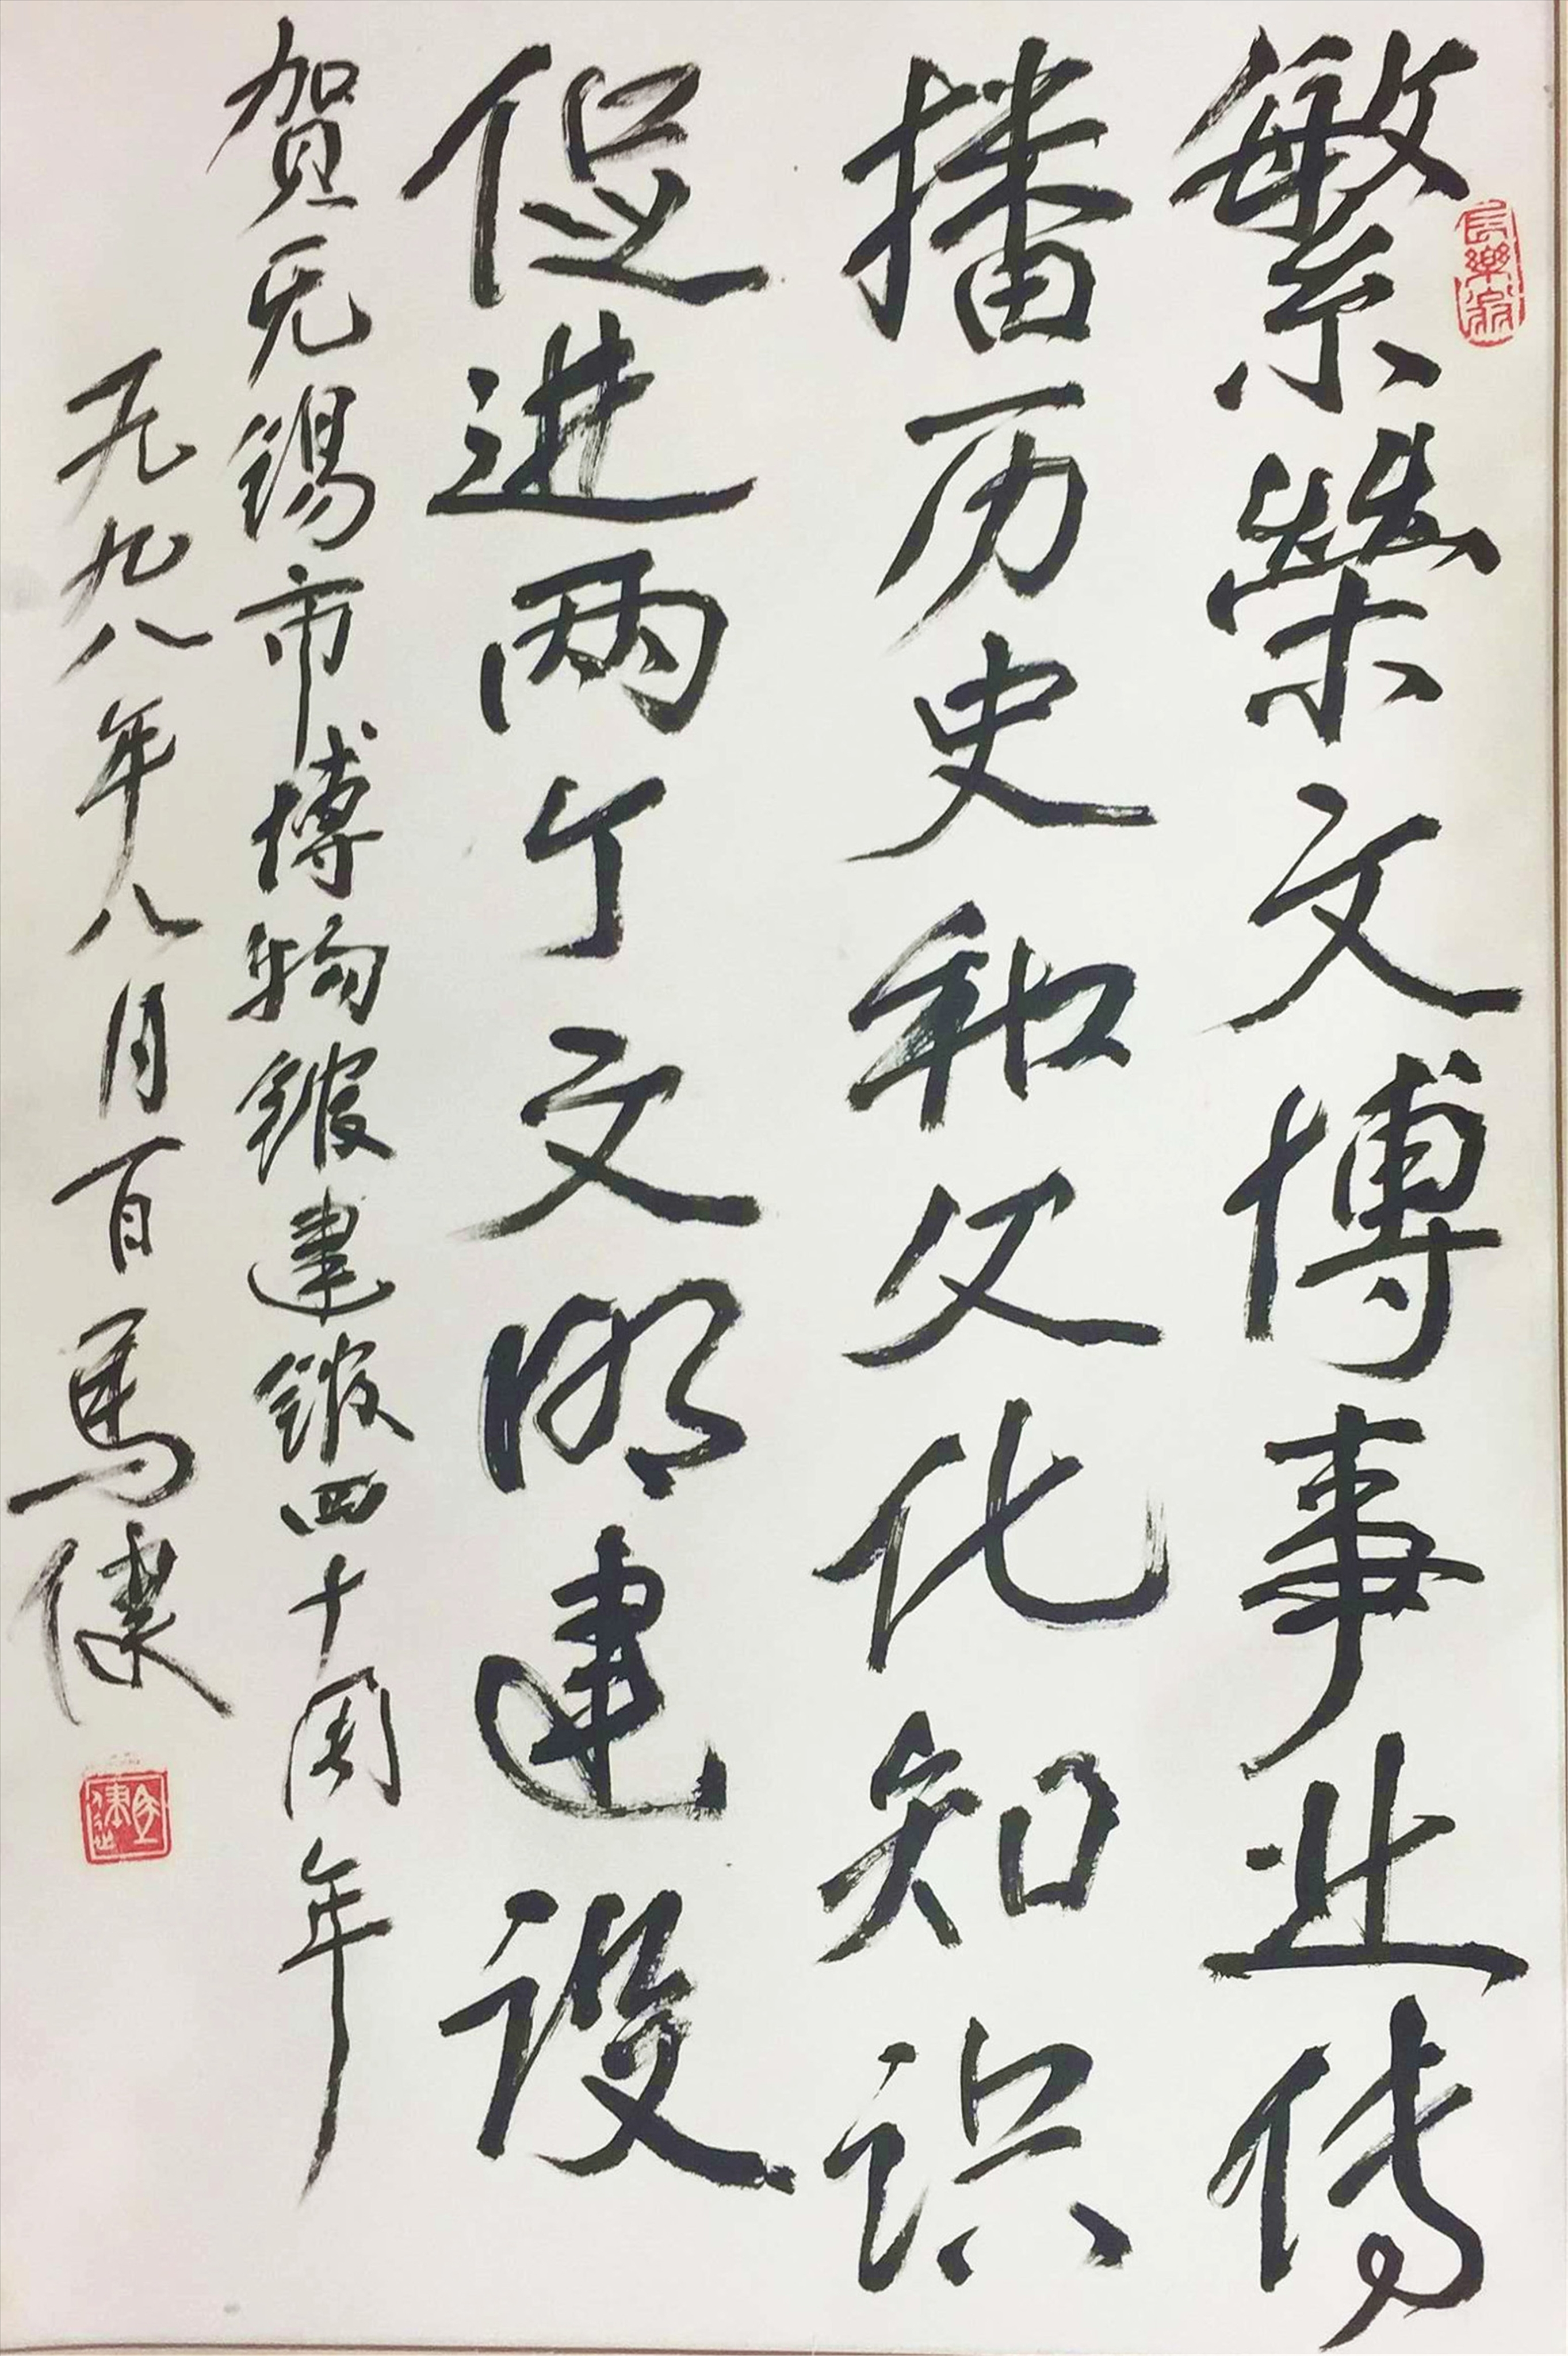 繁榮文博事业传
播历史和文化知识
促进两个文明建设
贺无锡市博物馆建馆四十周年
一九九八年八月一日馬健